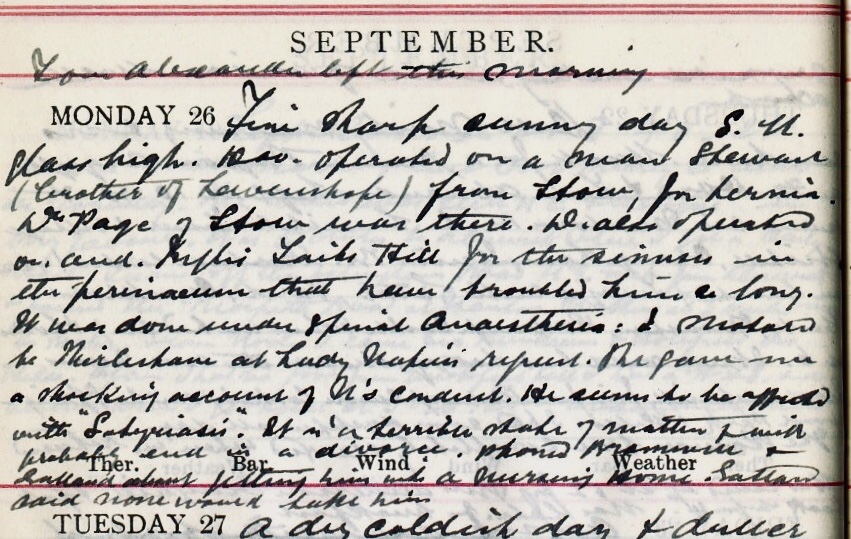 SEPTEMBER.
Tom Alexander left this morning
MONDAY 26 Fine sharp sunny day S. W.
glass high. Dav. operated on a man Stewart
(brother of Lavenshope) from Stow, for hernia.
Dr Page of Stow was there. D. also operated
on and. Hill for the sinuses in
the perinaeum that have troubled him so long.
It was done under Spinal Anaesthesia: I motored
to Thirlestane at Lady Napier's request. She gave me
a shocking account of N's conduct. He seems to be affected
with "Satyriasis" It is a horrible state of matters & will
probably end in a divorce. phoned &
about getting him into a Nursing Home.
said none would take him
Ther. Bar Wind Weather
TUESDAY 27 A dry coldish day & duller